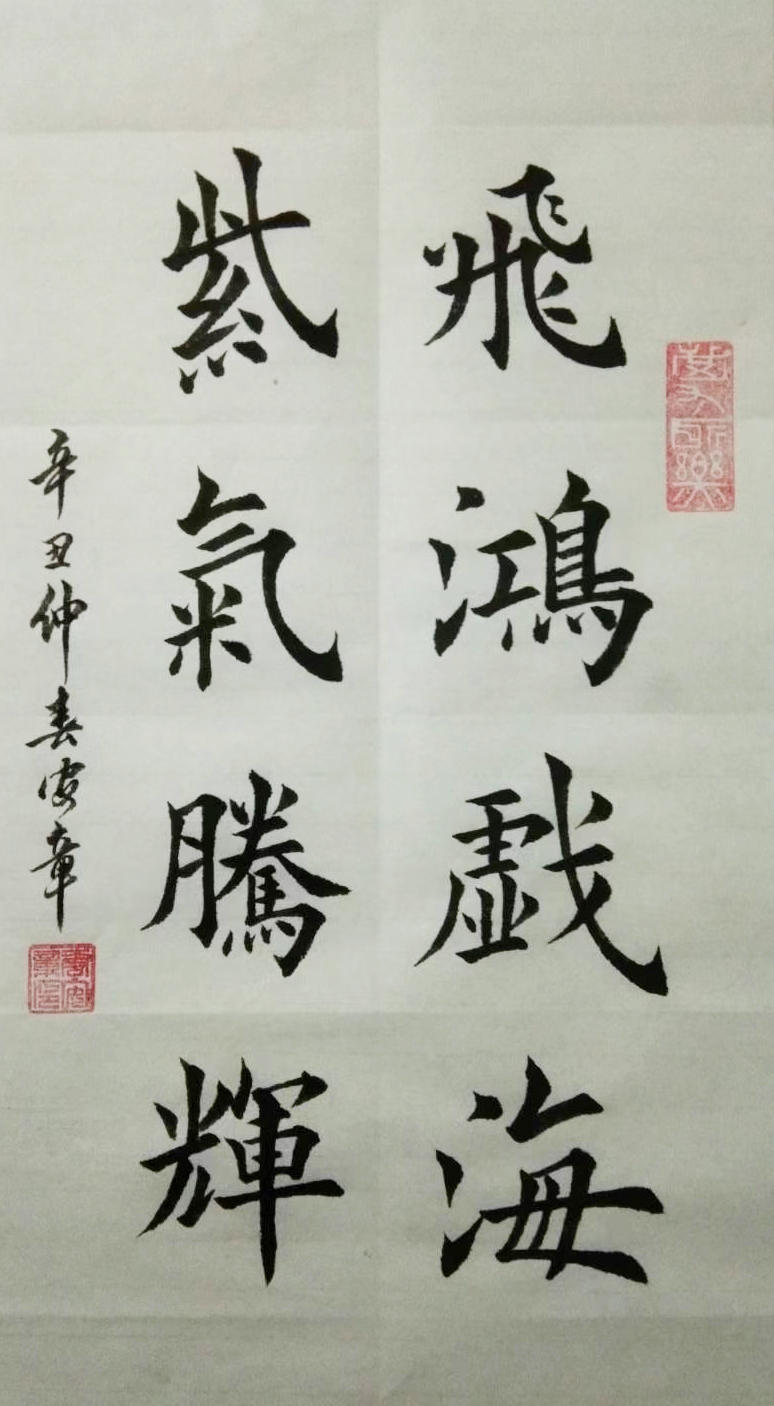 飛鴻戲海
紫氣騰輝
辛丑仲春安章